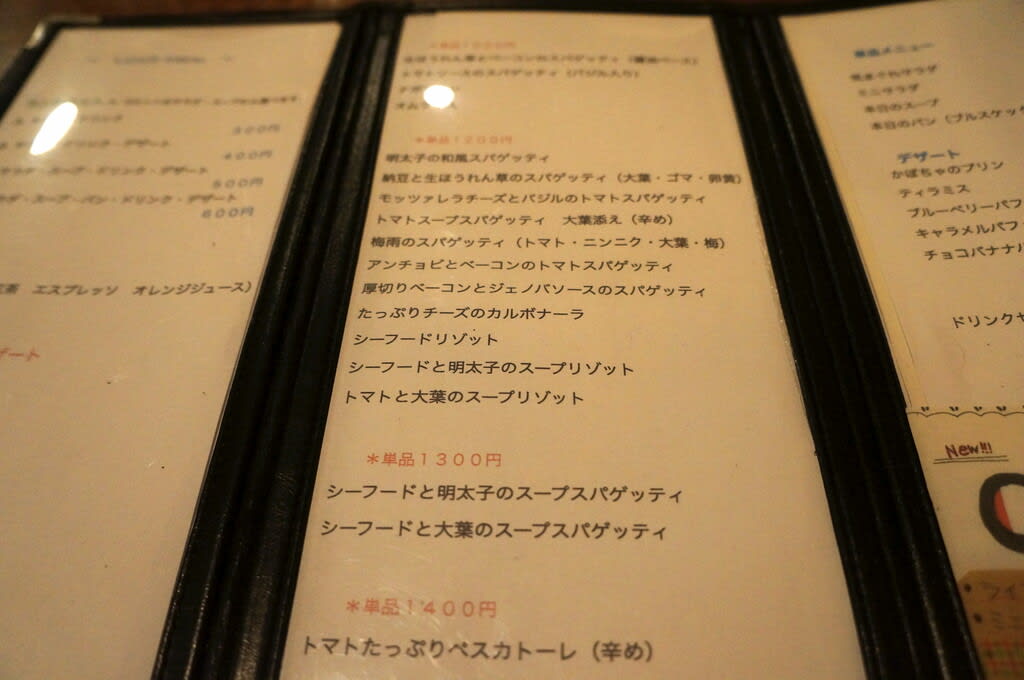 ドリンク
・デザート
500円
400円
サラダ・スープ・ドリンク・デザート
500円
サラダ・スープ・パン・ドリンク・デザート
600円
エスプレッソ オレンジジュース）
ザート
生ほうれん草とベーコンのスパゲッティ（醤油ベース）
トマトソースのスパゲッティ（バジル入り）
*単品1200円
明太子の和風スパゲッティ
納豆と生ほうれん草のスパゲッティ（大葉・ゴマ・卵黄）
モッツァレラチーズとバジルのトマトスパゲッティ
トマトスープスパゲッティ 大葉添え（辛め）
梅雨のスパゲッティ（トマト・ニンニク・大葉・梅）
アンチョビとベーコンのトマトスパゲッティ
厚切りベーコンとジェノバソースのスパゲッティ
たっぷりチーズのカルボナーラ
シーフードリゾット
シーフードと明太子のスープリゾット
トマトと大葉のスープリゾット
*単品1300円
シーフードと明太子のスープスパゲッティ
シーフードと大葉のスープスパゲッティ
*単品1400円
トマトたっぷりペスカトーレ（辛め）
単品メニュー
ミニサラダ
本日のスープ
本日のパン（ブルスケッ
デザート
かぼちゃのプリン
ティラミス
ブルーベリーパフ
キャラメルパフ
チョコバナナ
ドリンク
New!!!